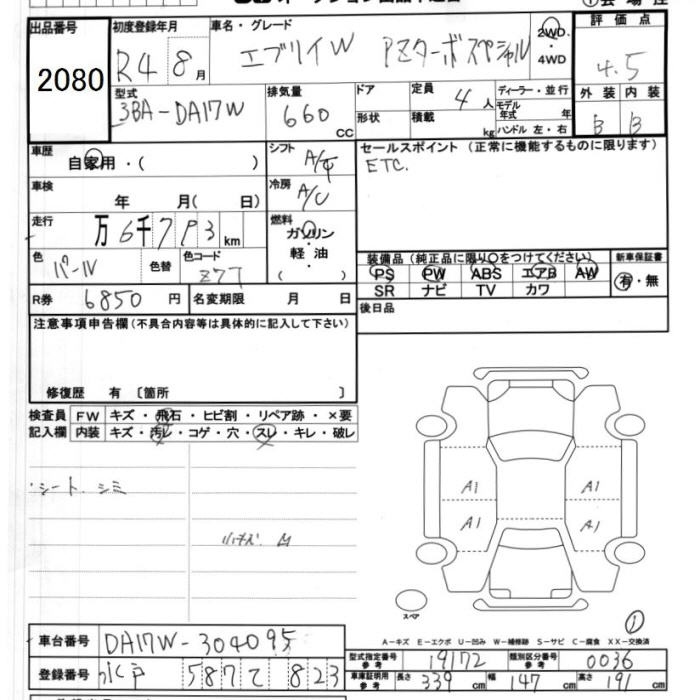 出品番号 初度登録年月 車名・グレード 評価点
2080 R4 8月 エブリイW PZターボスペシャル 2WD. 4WD 4.5
型式 排気量 ドア 定員 4人 ディーラー・並行 外装 内装
3BA-DA17W 660 CC 形状 積載 kg モデル年式 年 ハンドル 左・右 B B
車歴 自家用・( ) シフト A/T セールスポイント(正常に機能するものに限ります)
車検 年 月( 日) 冷房 A/C ETC.
走行 万6千793km 燃料 ガソリン・軽油・( )
色 パール 色替 色コード Z7T
装備品(純正品に限り○をつけてください) 新車保証書
PS PW ABS エアB AW 有・無
SR ナビ TV カワ
R券 6850円 名変期限 月 日 後日品
注意事項申告欄(不具合内容等は具体的に記入して下さい)
修復歴 有 〔箇所 〕
検査員 FW キズ・飛石・ヒビ割・リペア跡・×要
記入欄 内装 キズ・汚レ・コゲ・穴・スレ・キレ・破レ
・シート、シミ
A1 A1
A1 A1
スペア
1
A-キズ E-エクボ U-凹み W-補修跡 S-サビ C-腐食 XX-交換済
車台番号 DA17W-304095 型式指定番号 参考 19172 類別区分番号 参考 0036
登録番号 水戸 587て823 車庫証明用 参考 長さ 339cm 幅 147cm 高さ 191cm